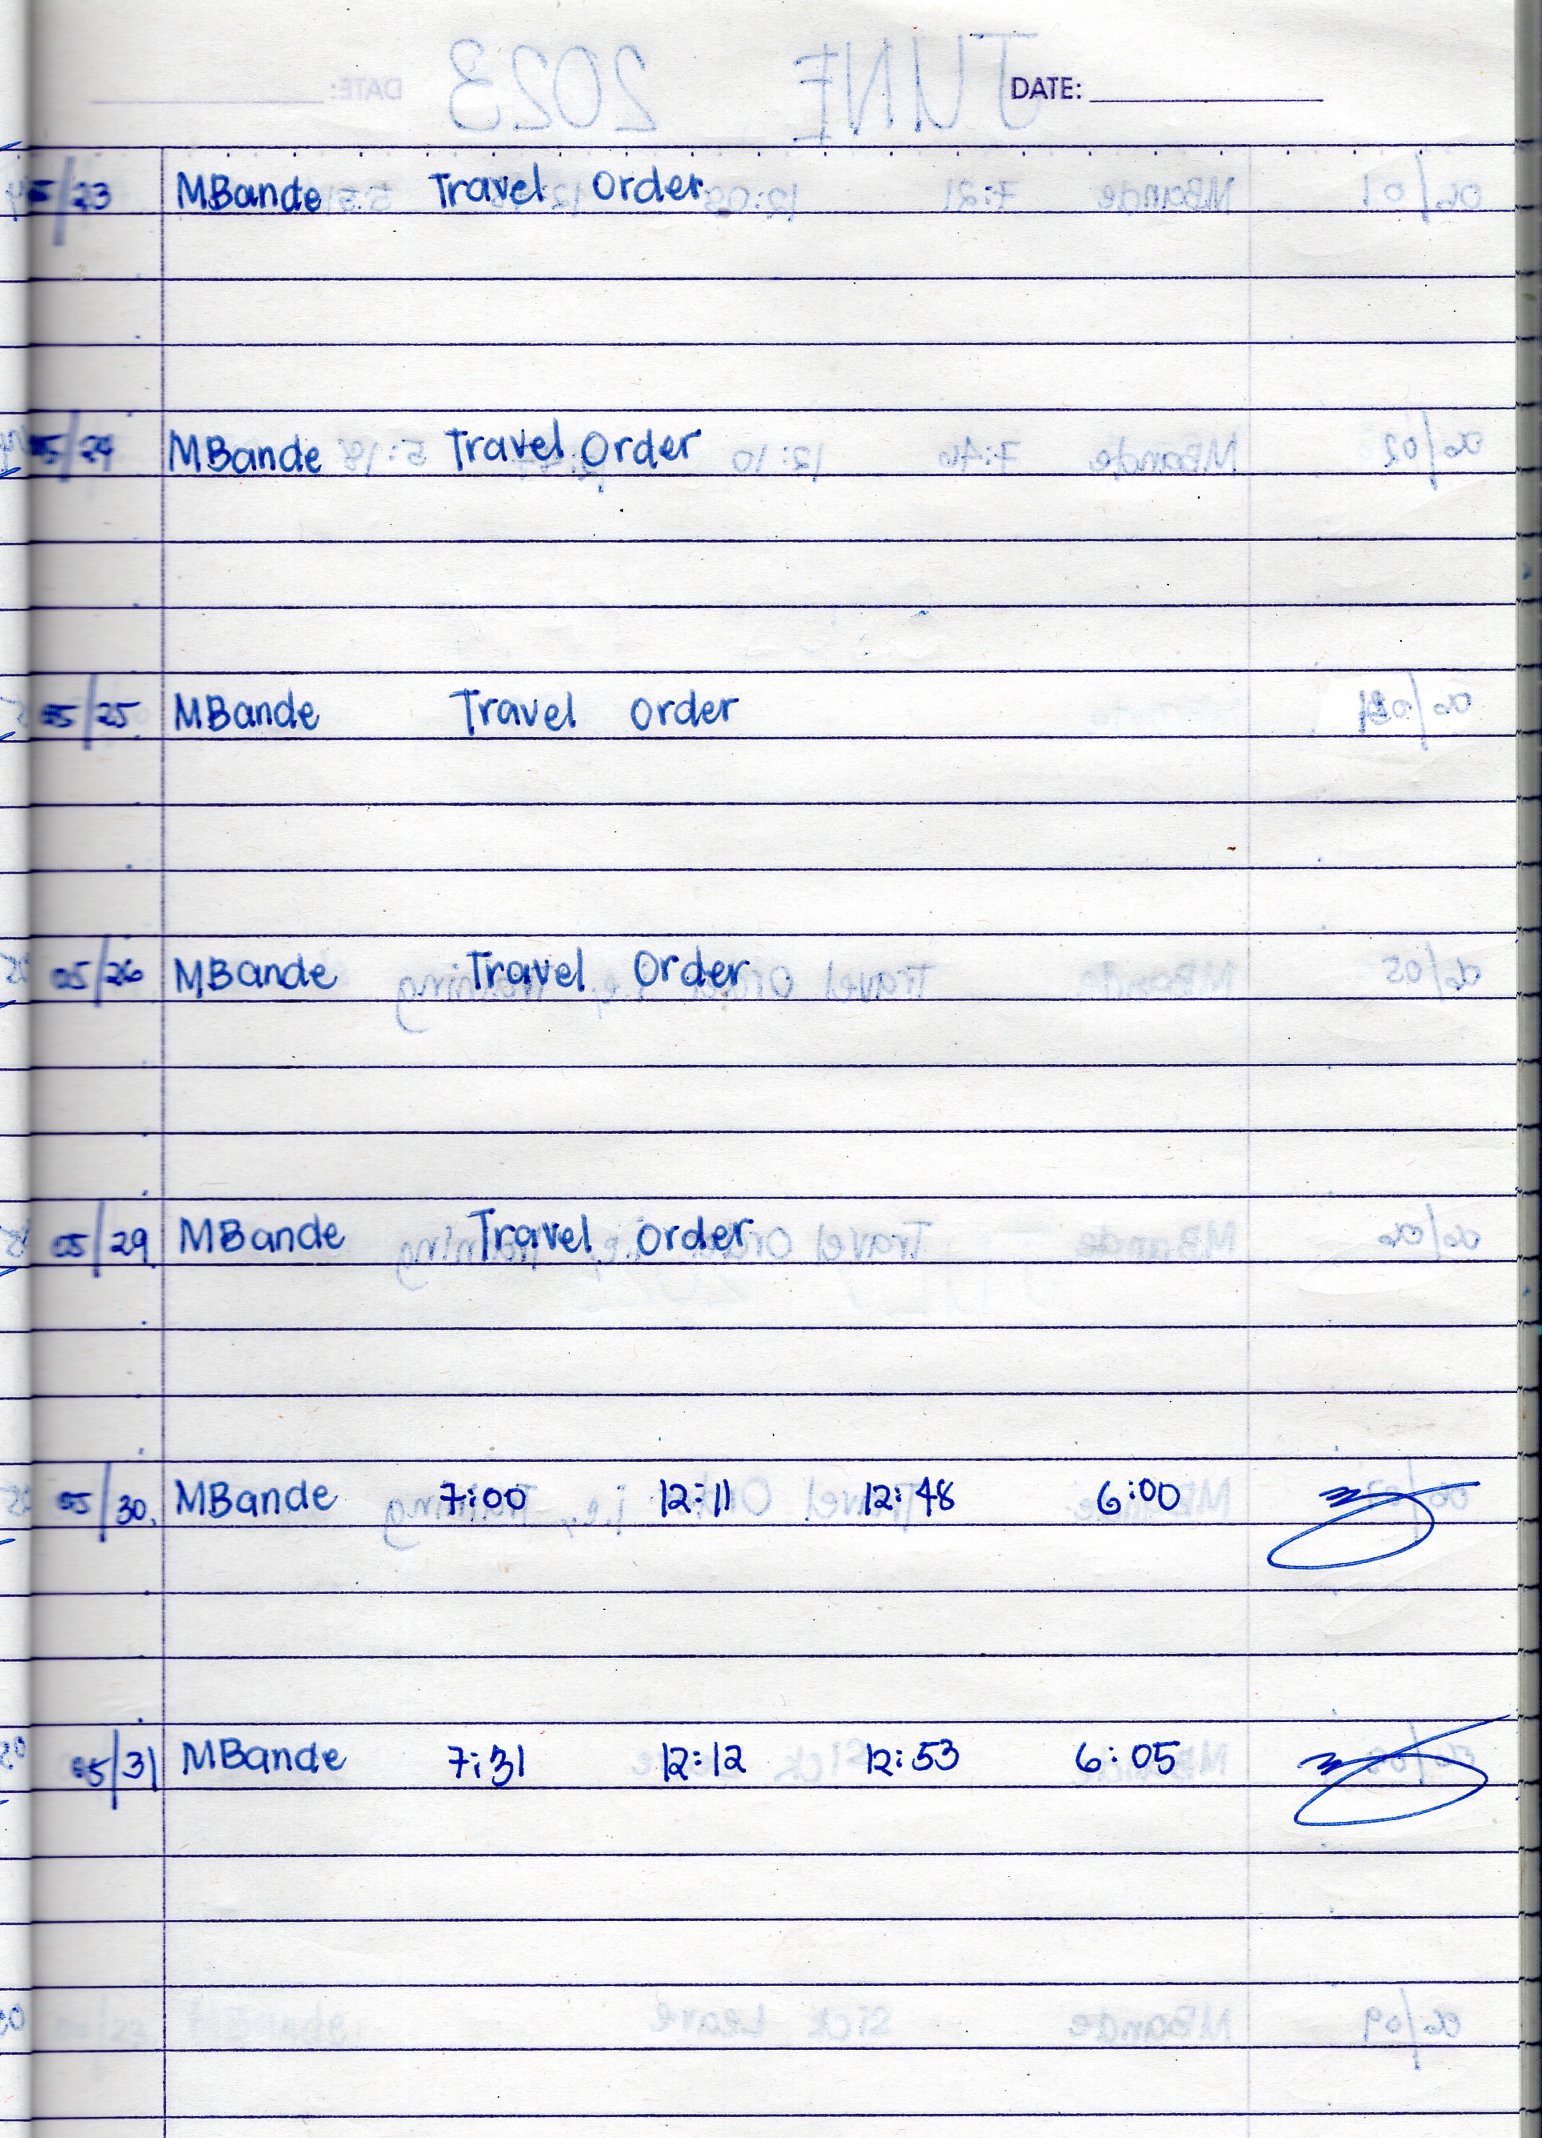 DATE:
5/23 MBande Travel Order
05/24 MBande Travel Order
05/25 MBande Travel Order
05/26 MBande Travel Order
05/29 MBande Travel Order
05/30 MBande 7:00 12:11 12:48 6:00
05/31 MBande 7:31 12:12 12:53 6:05